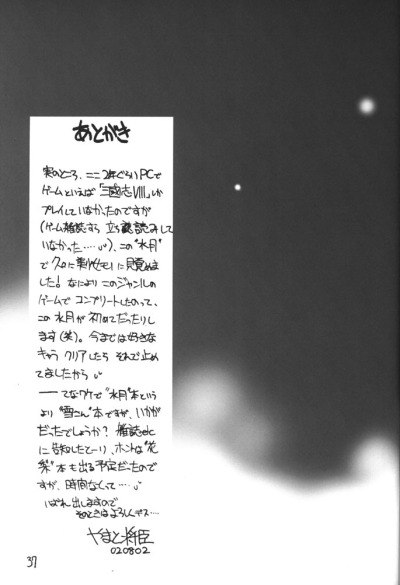 あとがき
実のところ、ここ2年ぐらいPCで
ゲームといえば「三國志VIII」しか
プレイしていなかったのですが
(ゲーム雑誌すら立ち読みして
いなかった……)、この"水月"
で久々に に目覚め
ました！なによりこのジャンルの
ゲームでコンプリートしたのって、
この水月が初めてだったりし
ます(笑)。今までは好きな
キャラクリアしたらそれで止め
てましたから
——てなワケで"水月"本という
より"雪さん"本ですが、いかが
だったでしょうか？雑誌etc
に告知したとーり、ホントは"花
梨"本も出る予定だったので
すが、時間なくて……
いずれ出しますので
そのときはよろしくデス…
やまと将臣
020802
37